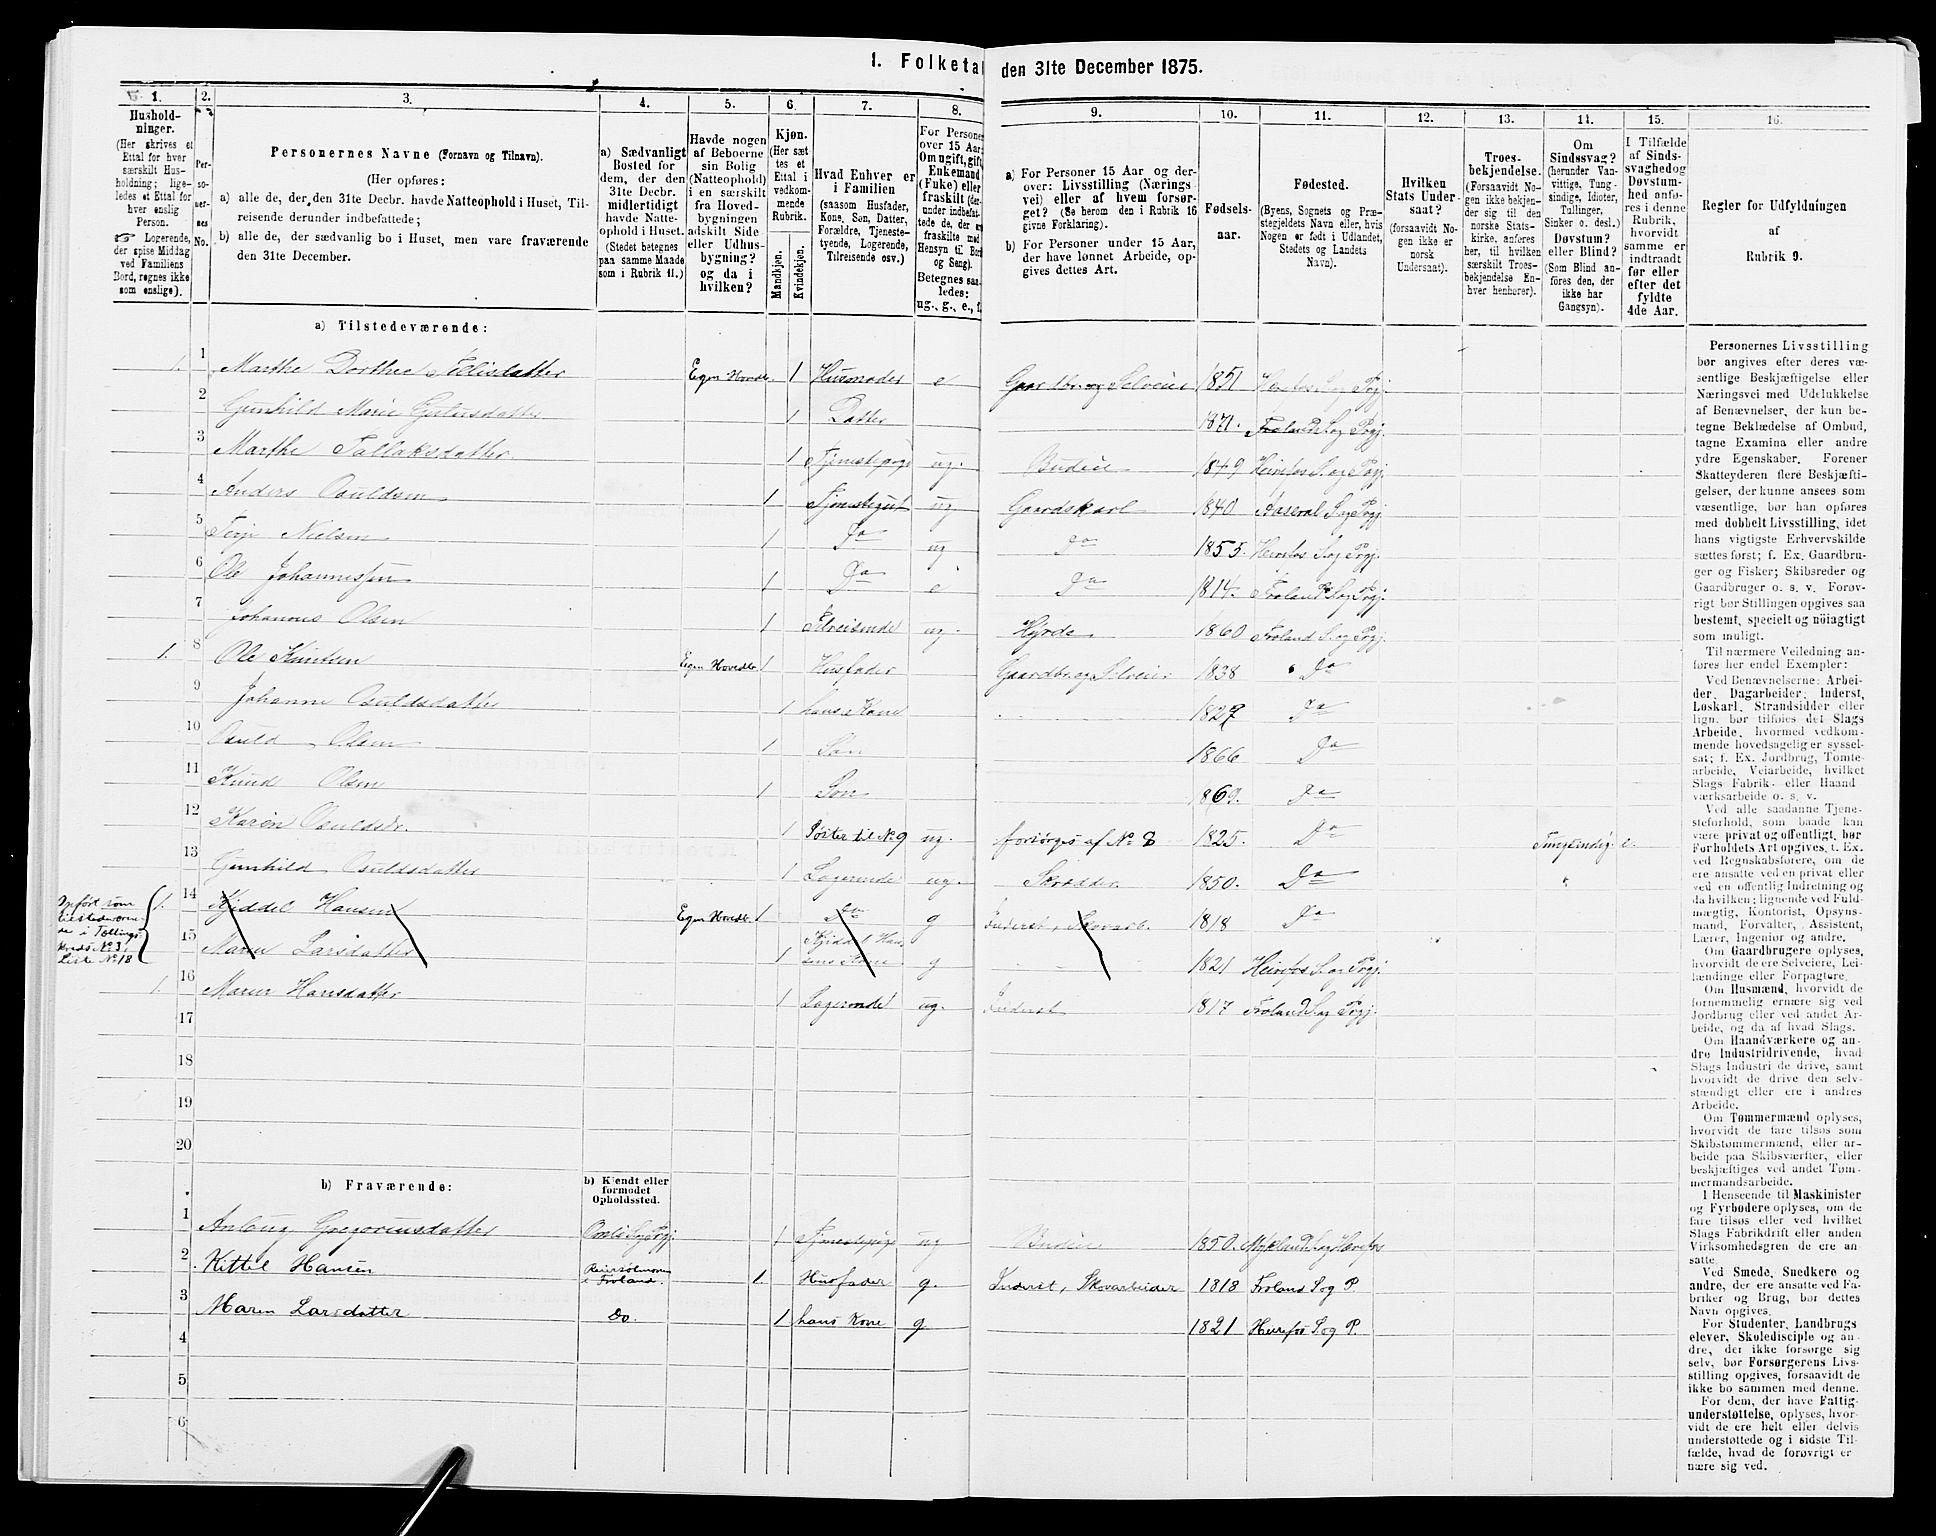 1. Folketal den 31te December 1875.
1.
Hushold-
ninger.
(Her skrives et
Ettal for hver
særskilt Hus-
holdning; lige-
ledes et Ettal for
hver enslig
Person.
Logerende,
der spise Middag
ved Familiens
Bord, regnes ikke
som enslige).
2.
Per-
so-
ner-
nes
No.
3.
Personernes Navne (Fornavn og Tilnavn).
(Her opføres:
a) alle de, der, den 31te Decbr. havde Natteophold i Huset, Til-
reisende derunder indbefattede;
b) alle de, der sædvanlig bo i Huset, men vare fraværende
den 31te December.
4.
a) Sædvanligt
Bosted for
dem, der den
31te Decbr.
midlertidigt
havde Natte-
ophold i Huset.
(Stedet betegnes
paa samme Maade
som i Rubrik 11.)
5.
Havde nogen
af Beboerne
sin Bolig
(Natteophold)
i en særskilt
fra Hoved-
bygningen
adskilt Side-
eller Udhus-
bygning?
og da i
hvilken?
6.
Kjøn.
(Her sæt-
tes et
Ettal i
vedkom-
mende
Rubrik.
Mandkjøn.
Kvindekjøn.
7.
Hvad Enhver er
i Familien
(saasom Husfader,
Kone, Søn, Datter,
Forældre, Tjeneste-
tyende, Logerende,
Tilreisende osv.)
8.
For Personer
over 15 Aar:
Om ugift, gift,
Enkemand
(Fuke) eller
fraskilt (der-
under indbefat-
tede de, der ere
fraskilte med
Hensyn til Bord
og Seng).
Betegnes saa-
ledes:
ug., g., e., f.
9.
a) For Personer 15 Aar og der-
over: Livsstilling (Nærings-
vei) eller af hvem forsør-
get? (Se herom den i Rubrik 16
givne Forklaring).
b) For Personer under 15 Aar,
der have lønnet Arbeide, op-
gives dettes Art.
10.
Fødsels-
aar.
11.
Fødested.
(Byens, Sognets og Præ-
stegjeldets Navn eller, hvis
Nogen er født i Udlandet,
Stedets og Landets
Navn).
12.
Hvilken
Stats Under-
saat?
(forsaavidt No-
gen ikke er
norsk
Undersaat).
13.
Troes-
bekjendelse.
(Forsaavidt No-
gen ikke bekjen-
der sig til den
norske Stats-
kirke, anføres
her, til hvilken
særskilt Troes-
bekjendelse En-
hver henhører).
14.
Om
Sindssvag?
(herunder Van-
vittige, Tung-
sindige, Idioter,
Tullinger,
Sinker o. desl.)
Døvstum?
eller Blind?
(Som Blind an-
føres den, der
ikke har
Gangsyn).
15.
I Tilfælde
af Sinds-
svaghed og
Døvstum-
hed anfø-
res i denne
Rubrik,
hvorvidt
samme er
indtraadt
før eller
efter det
fyldte
4de Aar.
16.
Regler for Udfyldningen
af
Rubrik 9.
a) Tilstedeværende:
1. 1 Marthe Dorthea Tellisdatter Egen Hovedb. 1 Husmoder e Gaardbr. og Selveier 1851 Herefos S. og Pgj.
2 Gunhild Marie Gjeruldsdatter 1 Datter 1871. Froland S. og Pgj.
3 Marthe Tallaksdatter 1 Tjenestepige ug. Budeie 1849 Heirefos S. og Pgj.
4 Anders Osuldsen 1 Tjenestegut ug Gaardskarl 1840 Aaseral S. og Pgj
5 Terje Nielsen 1 Do ug Do 1855. Heirefos S. og Pgj.
6 Ole Johannessen 1 Do e Do 1814. Froland S. og Pgj.
7 Johannes Olsen 1 Tilreisende ug. Hyrde 1860 Froland S. og Pgj.
1. 8 Ole Knudsen Egen Hovedb. 1 Husfader Gaardbr. og Selveier 1838 Do
9 Johanne Osuldsdatter 1 hans Kone 1827 Do
10 Osuld Olsen 1 Søn 1866 Do
11 Knud Olsen 1 Søn 1869. Do
12 Karen Osuldsdr. 1 Søster til No 9 ug. forsørges af No 8 1825. Do Tungsindig e.
13 Gunhild Osuldsdatter 1 Logerende ug. Skrædder 1850. Do "
Opført som
tilstedeværen-
de i Tællings-
kreds No 3,
Liste No 18
1. 14 Kjiddel Hansen Egen Hovedb. 1 Do g Inderst, Skovarb. 1818 Do
15 Maren Larsdatter 1 Kjiddel Han-
sens Kone g 1821 Heirefos S. og Pgj.
1. 16 Maren Hansdatter 1 Logerende ug. Inderst 1817 Froland S. og Pgj.
17
18
19
20
b) Fraværende:
b) Kjendt eller
formodet
Opholdssted.
1 Anlaug Gregoriusdatter 1 Tjenestepige ug Budeie 1850. Mykland S. og Herefos
2 Kittel Hansen Reiersølmoen
i Froland. 1. Husfader g. Inderst, Skovarbeider 1818 Froland S. og P.
3 Maren Larsdatter Do. 1 hans Kone g. 1821 Herefos S. og P.
4
5
6
Personernes Livsstilling
bør angives efter deres væ-
sentlige Beskjæftigelse eller
Næringsvei med Udelukkelse
af Benævnelser, der kun be-
tegne Beklædelse af Ombud,
tagne Examina eller andre
ydre Egenskaber. Forener
Skatteyderen flere Beskjæfti-
gelser, der kunne ansees som
væsentlige, bør han opføres
med dobbelt Livsstilling, idet
hans vigtigste Erhvervskilde
sættes først; f. Ex. Gaardbru-
ger og Fisker; Skibsreder og
Gaardbruger o. s. v. Forøv-
rigt bør Stillingen opgives saa
bestemt, specielt og nöiagtigt
som muligt.
Til nærmere Veiledning an-
føres her endel Exempler:
Ved Benævnelserne: Arbei-
der, Dagarbeider, Inderst,
Løskarl, Strandsidder eller
lign. bør tilføies det Slags
Arbeide, hvormed vedkom-
mende hovedsagelig er syssel-
sat; f. Ex. Jordbrug, Tomte-
arbeide, Veiarbeide, hvilket
Slags Fabrik- eller Haand-
værksarbeide o. s. v.
Ved alle saadanne Tjene-
steforhold, som baade kan
være privat og offentligt, bør
Forholdets Art opgives, t. Ex.
ved Regnskabsførere, om de
ere ansatte ved en privat eller
ved en offentlig Indretning og
da hvilken; lignende ved Fuld-
mægtig, Kontorist, Opsyns-
mand, Forvalter, Assistent,
Lærer, Ingeniør og andre.
Om Gaardbrugere oplyses,
hvorvidt de ere Selveiere, Lei-
lændinge eller Forpagtere.
Om Husmænd, hvorvidt de
fornemmelig ernære sig ved
Jordbrug eller ved andet Ar-
beide, og da af hvad Slags.
Om Haandværkere og an-
dre Industridrivende, hvad
Slags Industri de drive, samt
hvorvidt de drive den selv-
stændigt eller ere i andres
Arbeide.
Om Tømmermænd oplyses,
hvorvidt de fare tilsøs som
Skibstømmermænd, eller ar-
beide paa Skibsværfter, eller
beskjæftiges ved andet Tøm-
mermandsarbeide.
I Henseende til Maskinister
og Fyrbødere oplyses, om de
fare tilsøs eller ved hvilket
Slags Fabrikdrift eller anden
Virksomhedsgren de ere an-
satte.
Ved Smede, Snedkere og
andre, der ere ansatte ved Fa-
briker og Brug, bør dettes
Navn opgives.
For Studenter, Landbrugs-
elever, Skoledisciple og an-
dre, der ikke forsørge sig
selv, bør Forsørgerens Livs-
stilling opgives, forsaavidt de
ikke bo sammen med denne.
For dem, der have Fattig-
understøttelse, oplyses, hvor-
vidt de ere helt eller delvis
understøttede og i sidste Til-
fælde, hvad de forøvrigt er-
nære sig ved.